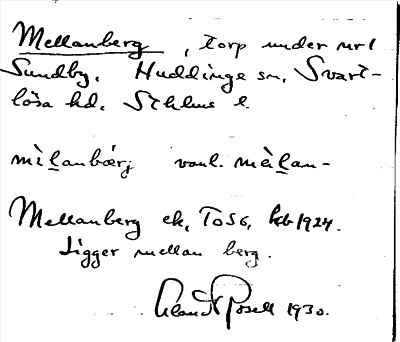 Mellanberg, torp under nr 1
Sundby, Huddinge sn, Svart-
lösa hd, Sthlms l.
mìḷanbærj vanl. mæ̀ḷan-
Mellanberg ek, To56, hkb 1924.
Ligger mellan berg.
1930.